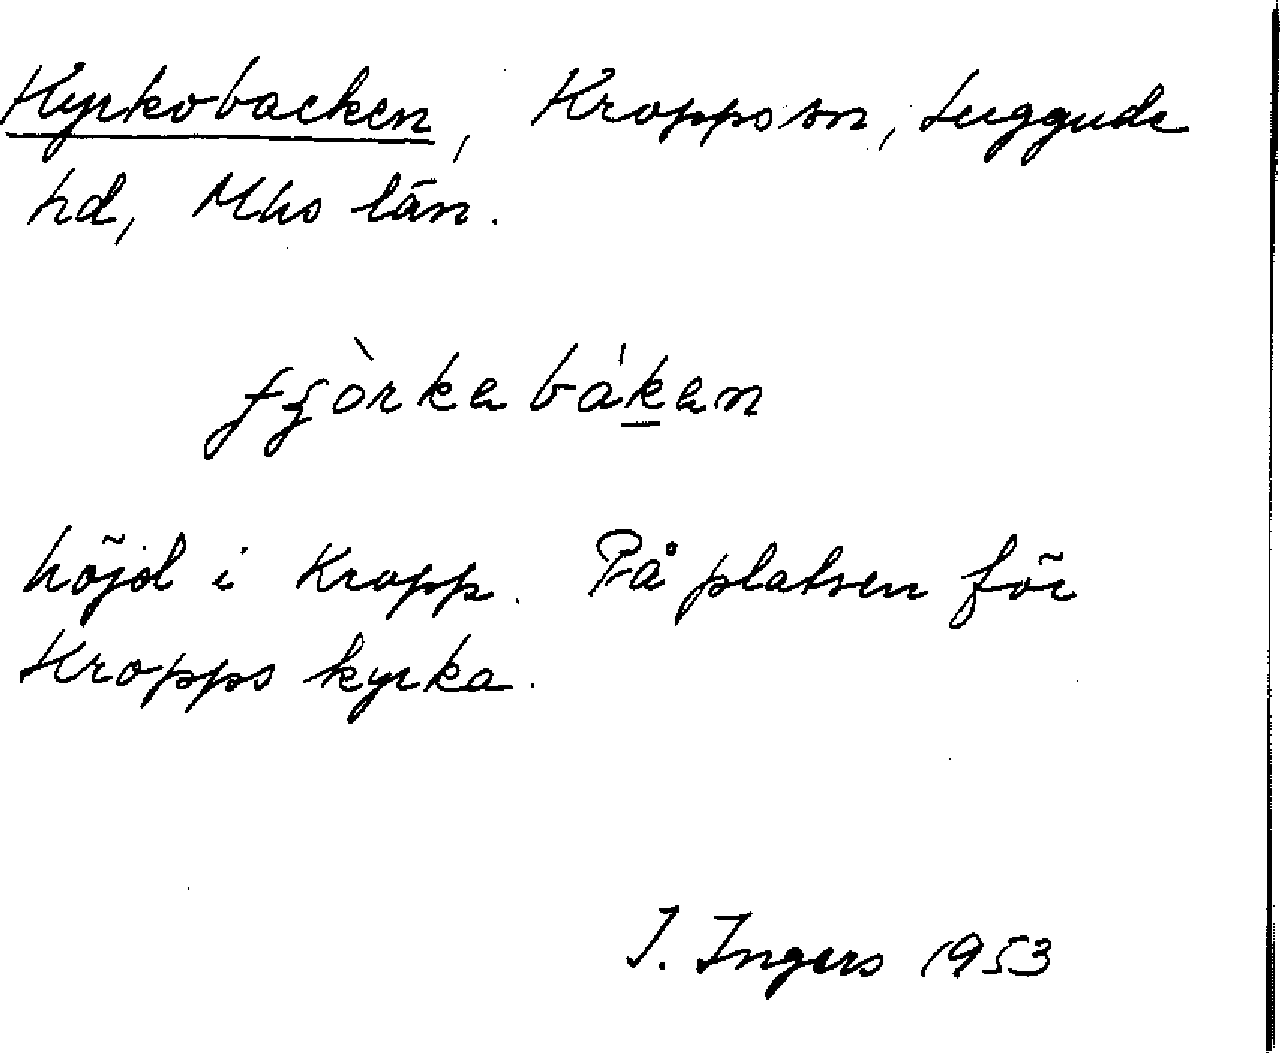 Kyrkobacken, Kropps sn, Luggude
hd, Mhs län.
fjòrkabákan
höjd i Kropp. På platsen för
Kropps kyrka.
I. Ingers 1953